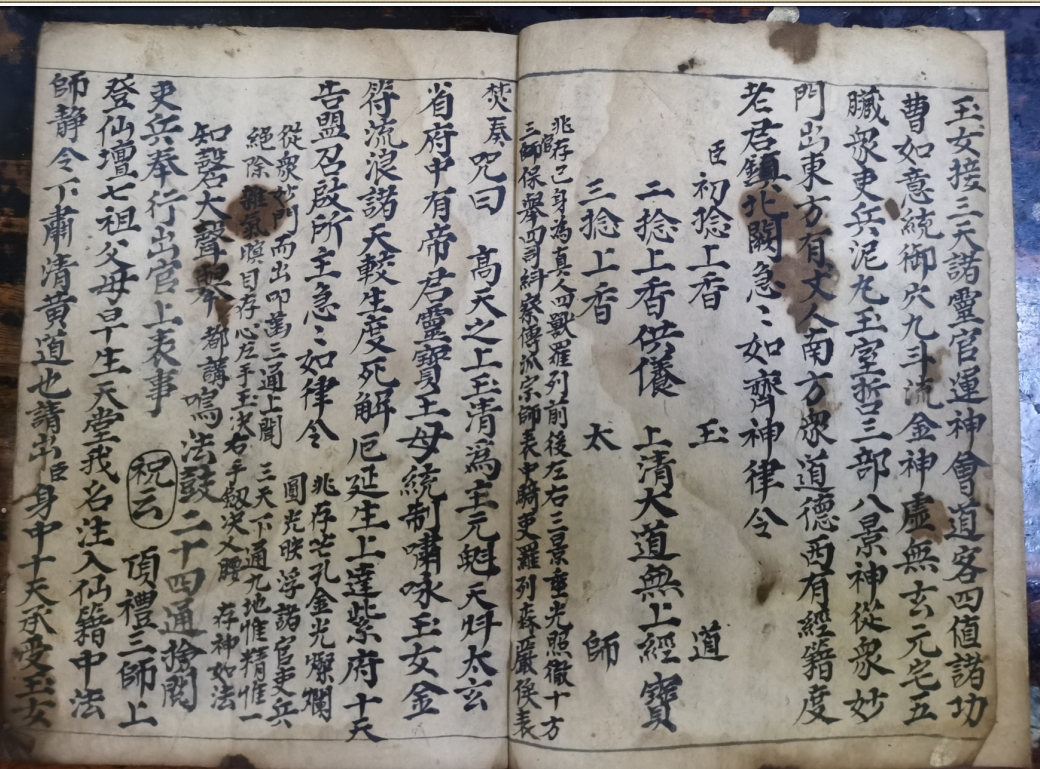 玉女接三天諸靈官運神會道客四值諸功
曹如意統御穴九斗流金神虛無去元宅五
臟眾吏兵泥丸玉室哲三部八景神從眾妙
門出東方有丈人南方眾道德西有經籍度
老君鎮北闕急〻如齊神律令
臣初捻上香 玉 道
二捻上香供儀 上清大道無上經寶
三捻上香 太 師
兆存己身為真人四獸羅列前後左右三景垂光照徹十方
三師保舉四司糾察傳派宗師表中騎吏羅列森嚴俟表
焚奏咒曰 高天之上玉清為主元魁天斗太玄
省府中有帝君靈寶王母統制嘯咏玉女金
符流浪諸天較生度死解厄延生上達紫府十天
告盟召啟所主急〻如律令
兆存芒孔金光爍爛
圓光映浮諸官吏兵
從眾妙門而出叩萬三通上聞
三天下通九地惟精惟一
絕除雜氣瞑目存心左手玉决右手劔决入腰
存神如法
知磬大聲舉 都講鳴法鼓二十四通捨閱
吏兵奉行出官上表事 祝云 頂禮三師上
登仙壇七祖父母早生天堂我名注入仙籍中法
師靜令下肅清黃道也請出臣身中十天承受玉女